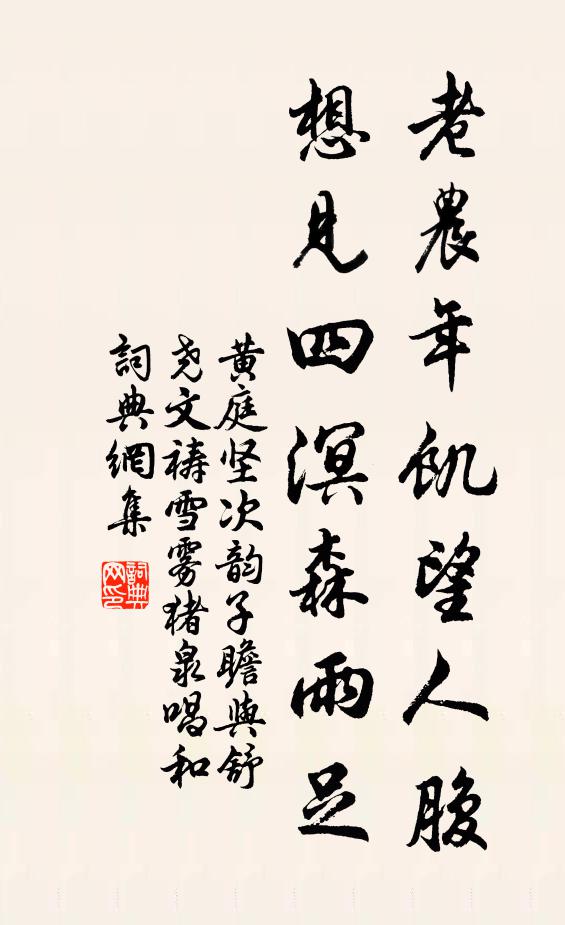 老農年飢望人腹
想見四溟森雨足
黄庭坚次韵子瞻與舒
尧文禱雪雾猪泉唱和
詞典網集
詞典网印